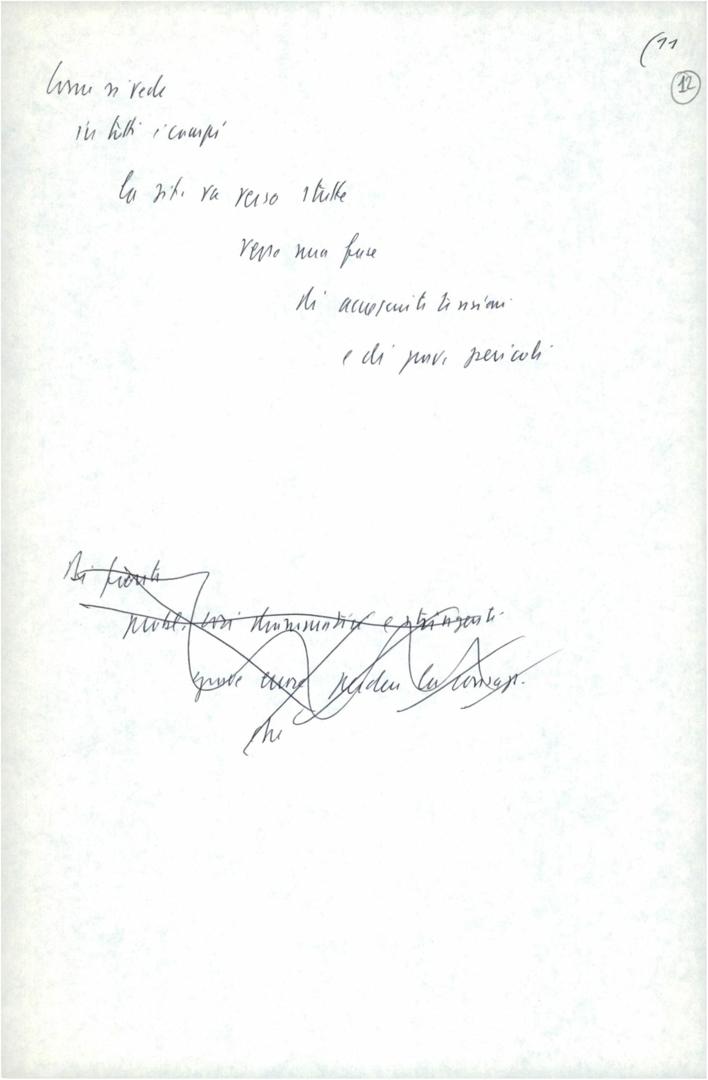 (11
12
Come si vede
in tutti i campi
la sit. va verso strette
verso una fase
di accresciute tensioni
e di gravi pericoli
Di fronte
probl. così drammatici e stringenti
grave errore perdere la
che